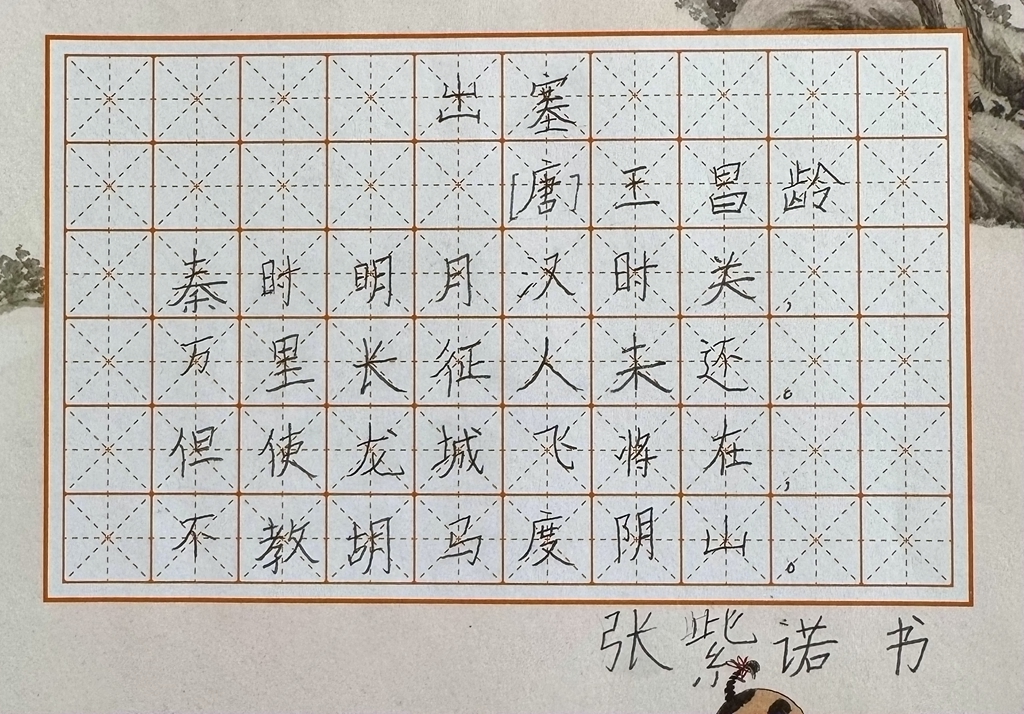 出塞
[唐]王昌龄
秦时明月汉时关,
万里长征人未还。
但使龙城飞将在,
不教胡马度阴山。
张紫诺 书